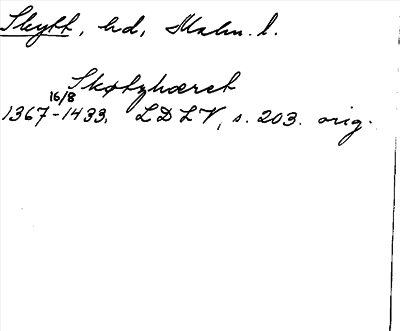 Skytt, hd, Malm. l.
Skøtzhæret
16/8
1367-1433, LDLV, s. 203. orig.